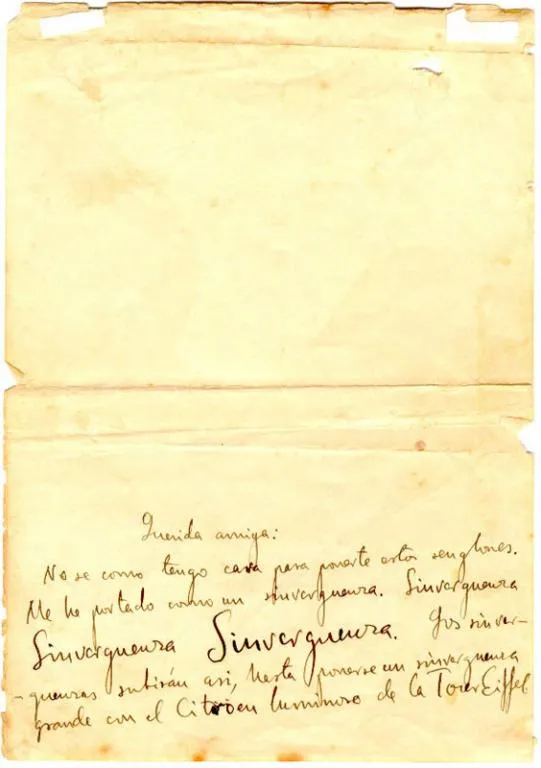 Querida amiga:
No se como tengo cara para ponerte estos renglones.
Me he portado como un sinverguenza. Sinverguenza
Sinverguenza Sinverguenza. Los sinver-
-guenzas subirán asi, hasta ponerse un sinverguenza
grande con el Citroen luminoso de la Tour Eiffel